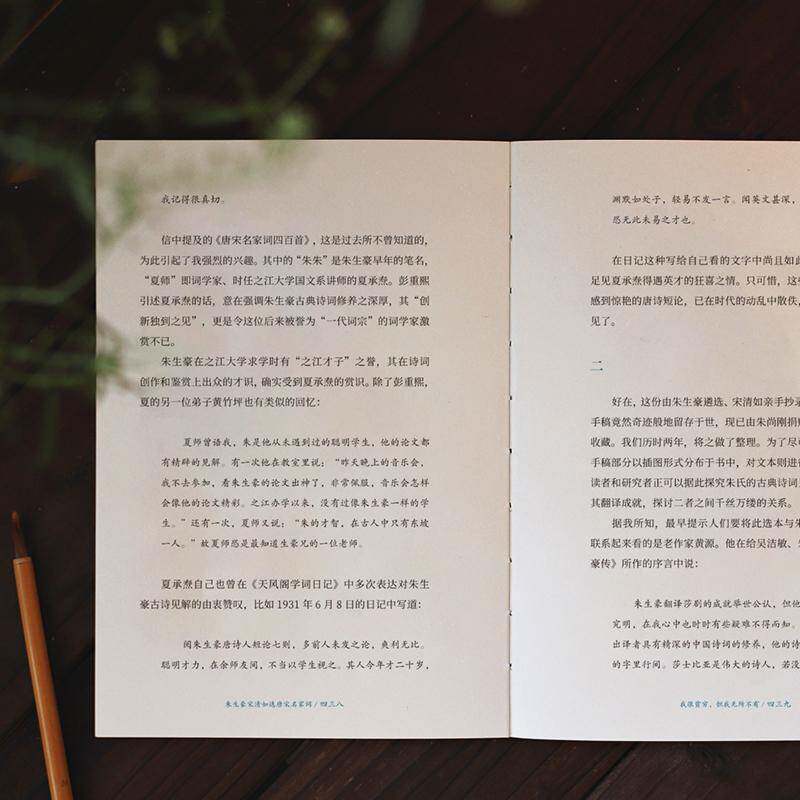 我记得很真切。
信中提及的《唐宋名家词四百首》，这是过去所不曾知道的，
为此引起了我强烈的兴趣。其中的“朱朱”是朱生豪早年的笔名，
“夏师”即词学家、时任之江大学国文系讲师的夏承焘。彭重熙
引述夏承焘的话，意在强调朱生豪古典诗词修养之深厚，其“创
新独到之见”，更是令这位后来被誉为“一代词宗”的词学家激
赏不已。
朱生豪在之江大学求学时有“之江才子”之誉，其在诗词
创作和鉴赏上出众的才识，确实受到夏承焘的赏识。除了彭重熙，
夏的另一位弟子黄竹坪也有类似的回忆：
夏师曾语我，朱是他从未遇到过的聪明学生，他的论文都
有精辟的见解。有一次他在教室里说：“昨天晚上的音乐会，
我不去参加，看朱生豪的论文出神了，非常佩服，音乐会怎样
会像他的论文精彩。之江办学以来，没有过像朱生豪一样的学
生。”还有一次，夏师又说：“朱的才智，在古人中只有东坡
一人。”故夏师恐是最知道生豪兄的一位老师。
夏承焘自己也曾在《天风阁学词日记》中多次表达对朱生
豪古诗见解的由衷赞叹，比如 1931 年 6 月 8 日的日记中写道：
阅朱生豪唐诗人短论七则，多前人未发之论，爽利无比。
聪明才力，在余师友间，不当以学生视之。其人今年才二十岁，
朱生豪宋清如选唐宋名家词 / 四三八
渊默如处子，轻易不发一言。闻英文甚深，
恐无此未易之才也。
在日记这种写给自己看的文字中尚且如此
足见夏承焘得遇英才的狂喜之情。只可惜，这些
感到惊艳的唐诗短论，已在时代的动乱中散佚，
见了。
二
好在，这份由朱生豪遴选、宋清如亲手抄录
手稿竟然奇迹般地留存于世，现已由朱尚刚捐赠
收藏。我们历时两年，将之做了整理。为了尽可
手稿部分以插图形式分布于书中，对文本则进行
读者和研究者正可以据此探究朱氏的古典诗词
其翻译成就，探讨二者之间千丝万缕的关系。
据我所知，最早提示人们要将此选本与朱
联系起来看的是老作家黄源。他在给吴洁敏、朱
豪传》所作的序言中说：
朱生豪翻译莎剧的成就举世公认，但他
完明，在我心中也时时有些疑难不得而知。
出译者具有精深的中国诗词的修养，他的诗
的字里行间。莎士比亚是伟大的诗人，若没
我很贫穷，但我无所不有 / 四三九